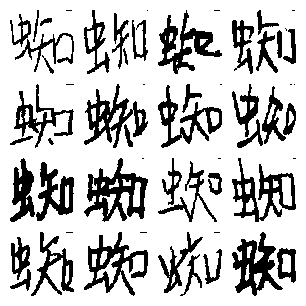 蜘蜘蜘蜘
蜘蜘蜘蜘
蜘蜘蜘蜘
蜘蜘蜘蜘